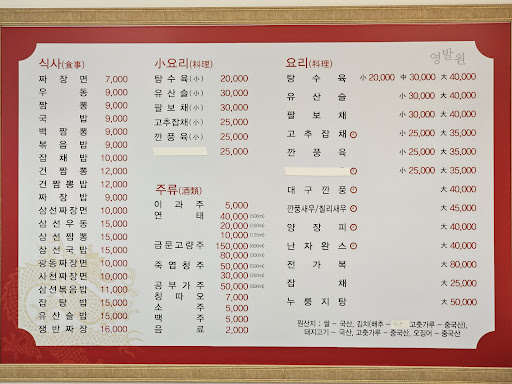 영발원
식사(食事)
짜장면 7,000
우동 9,000
짬뽕 9,000
국밥 9,000
백짬뽕 9,000
볶음밥 9,000
잡채밥 10,000
간짬뽕 12,000
간짬뽕밥 12,000
짜장밥 9,000
삼선짜장면 10,000
삼선우동 15,000
삼선짬뽕 15,000
삼선국밥 15,000
광동짜장면 10,000
사천짜장면 10,000
삼선볶음밥 11,000
잡탕밥 15,000
유산슬밥 15,000
쟁반짜장 16,000
소요리(料理)
탕수육(小) 20,000
유산슬(小) 30,000
팔보채(小) 30,000
고추잡채(小) 25,000
깐풍육(小) 25,000
25,000
주류(酒類)
이과주 5,000
연태 40,000 (500ml)
20,000 (250ml)
10,000 (125ml)
금문고량주 150,000
80,000
죽엽청주 50,000 (500ml)
30,000
공부가주 50,000 (500ml)
칭따오 7,000
소주 5,000
맥주 5,000
음료 2,000
요리(料理)
탕수육 小 20,000 中 30,000 大 40,000
유산슬 小 30,000 大 40,000
팔보채 小 30,000 大 40,000
고추잡채 小 25,000 大 35,000
깐풍육 小 25,000 大 35,000
小 25,000 大 35,000
대구깐풍 大 40,000
깐풍새우/칠리새우 大 45,000
양장피 大 40,000
난자완스 大 40,000
전가복 大 80,000
잡채 大 25,000
누룽지탕 大 50,000
원산지 : 쌀 - 국산, 김치(배추 - 고춧가루 - 중국산),
돼지고기 - 국산, 고춧가루 - 중국산, 오징어 - 중국산